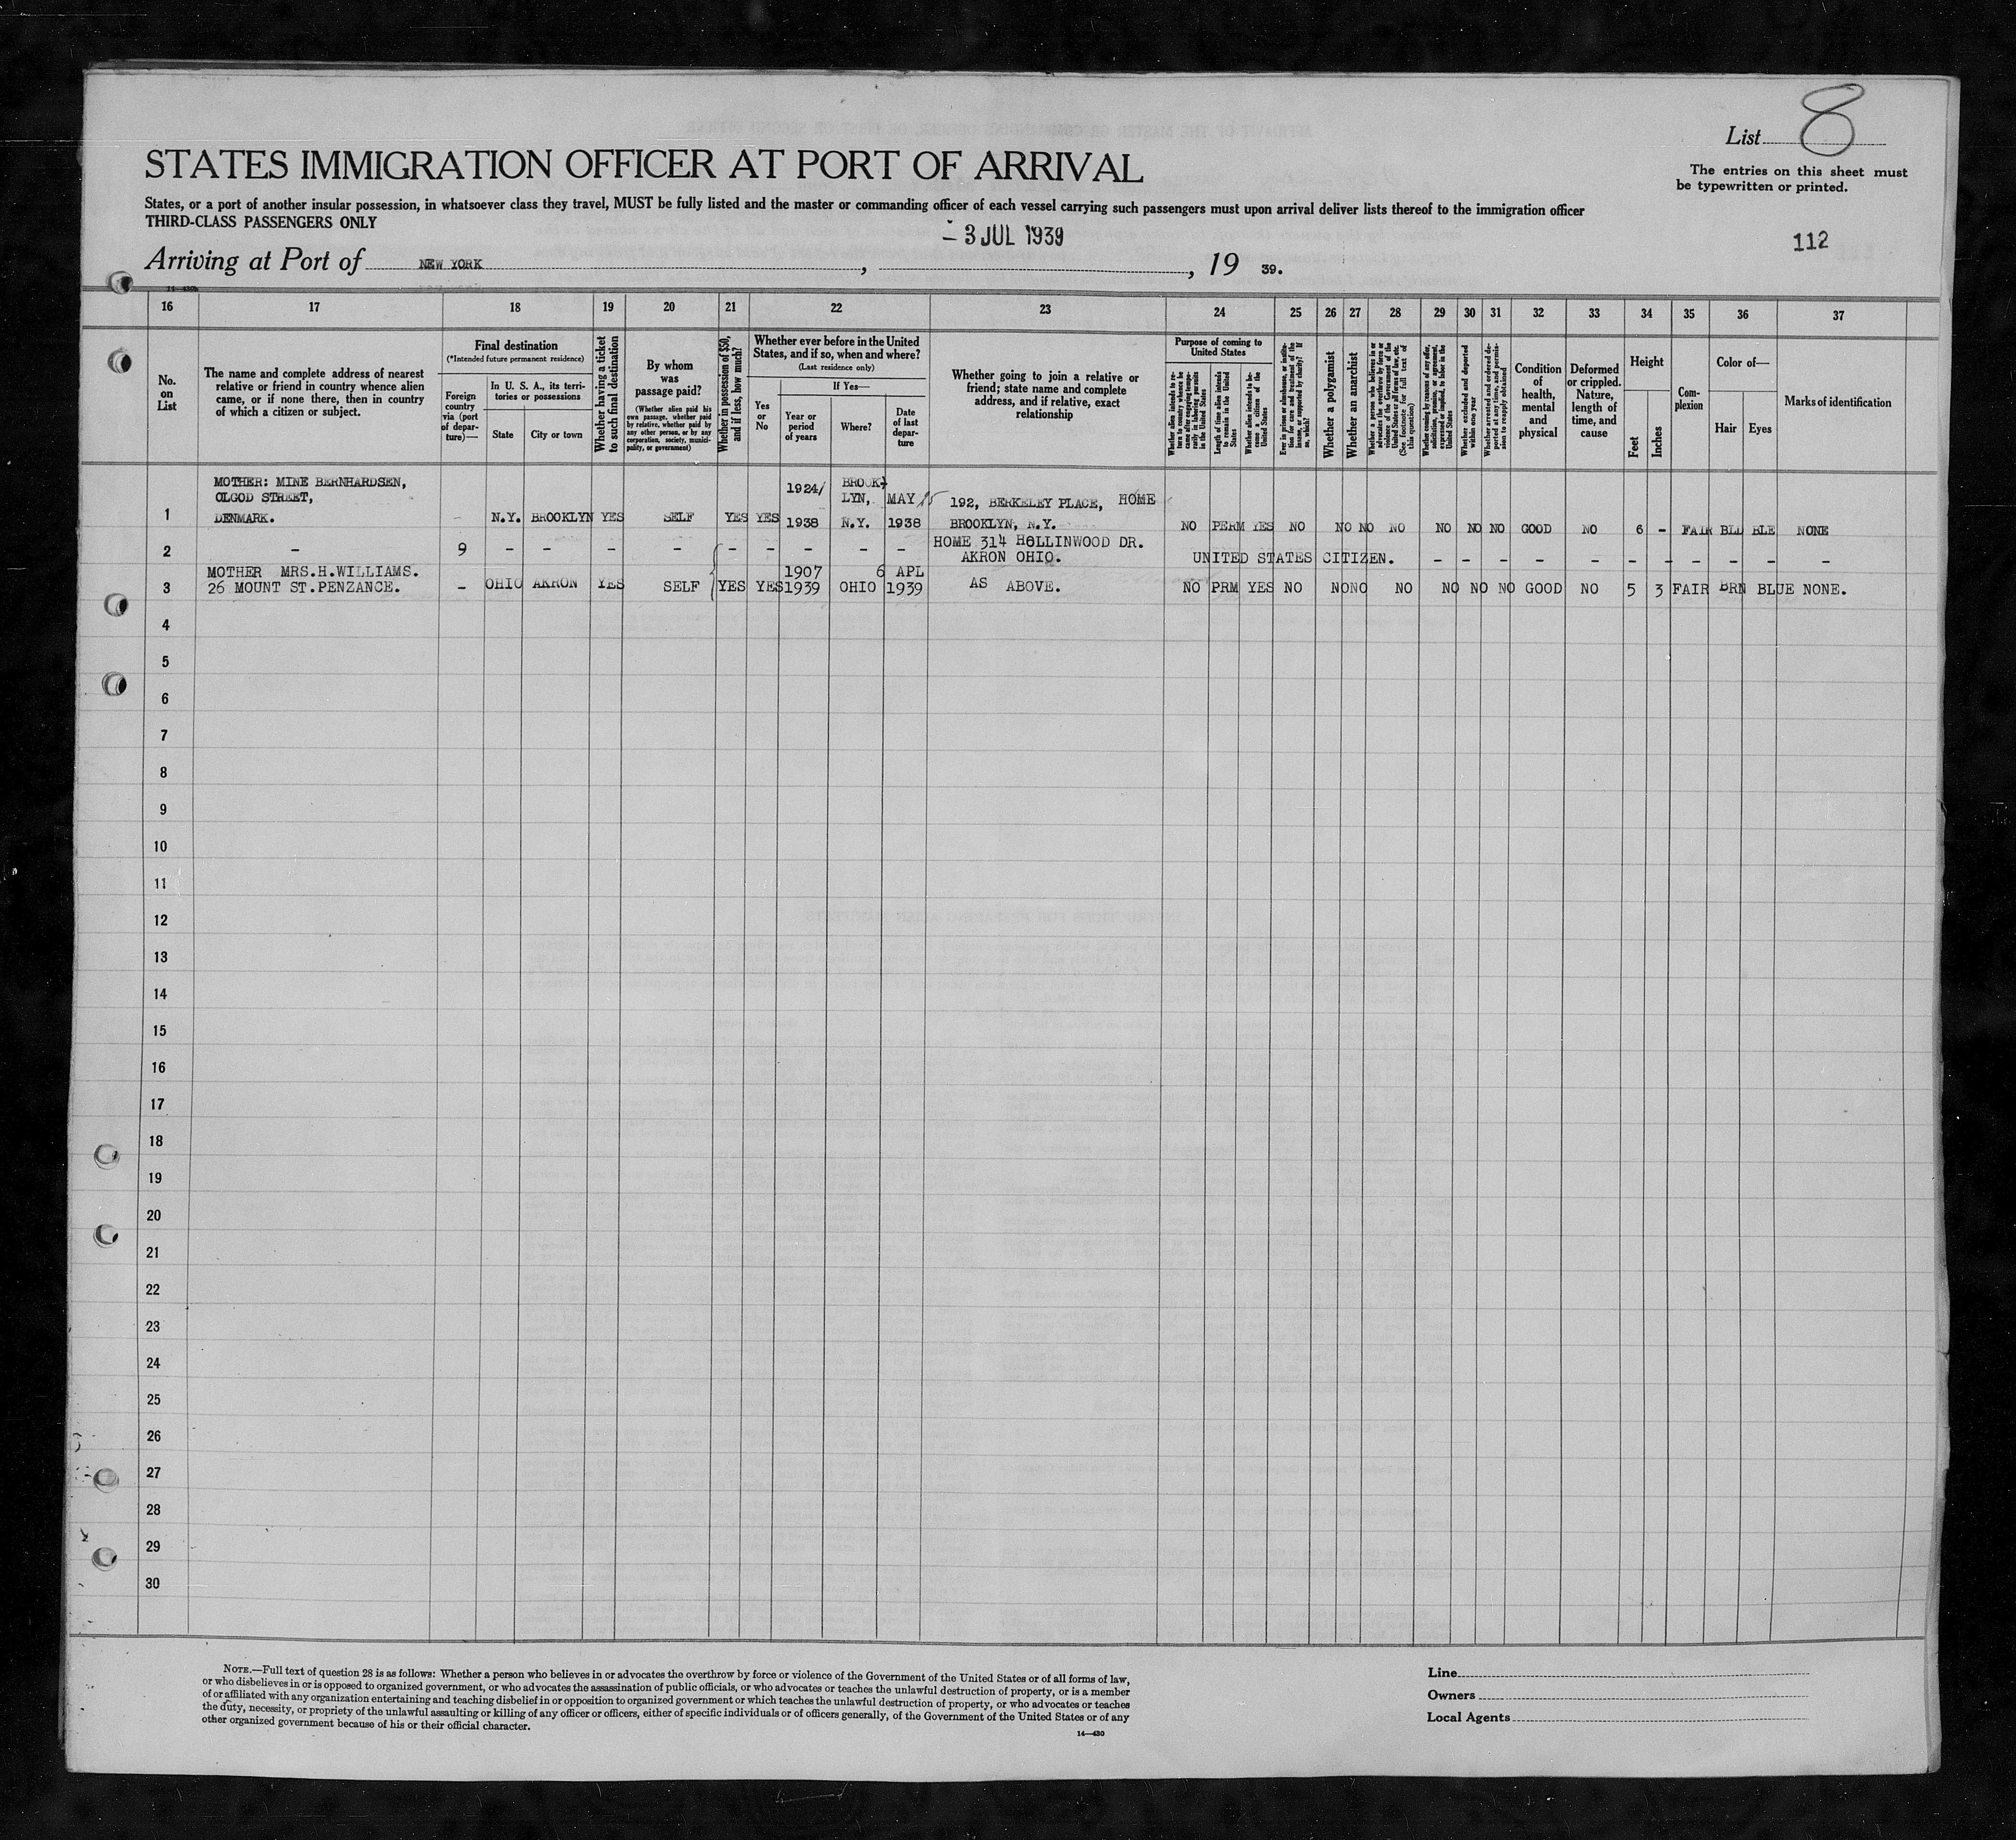 List 8
The entries on this sheet must
be typewritten or printed.
STATES IMMIGRATION OFFICER AT PORT OF ARRIVAL
States, or a port of another insular possession, in whatsoever class they travel, MUST be fully listed and the master or commanding officer of each vessel carrying such passengers must upon arrival deliver lists thereof to the immigration officer
THIRD-CLASS PASSENGERS ONLY
- 3 JUL 1939
112
Arriving at Port of NEW YORK, , 19 39.
16 17 18 19 20 21 22 23 24 25 26 27 28 29 30 31 32 33 34 35 36 37
No. on List
The name and complete address of nearest relative or friend in country whence alien came, or if none there, then in country of which a citizen or subject.
Final destination
(*Intended future permanent residence)
Foreign country via (port of departure)—
In U. S. A., its territories or possessions
State
City or town
Whether having a ticket to such final destination
By whom was passage paid?
(Whether alien paid his own passage, whether paid by relative, whether paid by any other person, or by any corporation, society, municipality, or government)
Whether in possession of $50, and if less, how much?
Whether ever before in the United States, and if so, when and where?
(Last residence only)
Yes or No
If Yes—
Year or period of years
Where?
Date of last departure
Whether going to join a relative or friend; state name and complete address, and if relative, exact relationship
Purpose of coming to United States
Whether alien intends to return to country whence he came after engaging temporarily in laboring pursuits in the United States
Length of time alien intends to remain in the United States
Whether alien intends to become a citizen of the United States
Ever in prison or almshouse, or institution for care and treatment of the insane, or supported by charity? If so, which?
Whether a polygamist
Whether an anarchist
Whether a person who believes in or advocates the overthrow by force or violence of the Government of the United States or all forms of law, etc. (See footnote for full text of this question)
Whether coming by reasons of any offer, solicitation, promise, or agreement, expressed or implied, to labor in the United States
Whether excluded and deported within one year
Whether arrested and ordered deported at any time, and permission to reapply obtained
Condition of health, mental and physical
Deformed or crippled. Nature, length of time, and cause
Height
Feet
Inches
Complexion
Color of—
Hair
Eyes
Marks of identification
MOTHER: MINE BERNHARDSEN,
OLGOD STREET,
1 DENMARK. – N.Y. BROOKLYN YES SELF YES YES 1924/ 1938 BROOK- LYN, N.Y. MAY 15 1938 192, BERKELEY PLACE, HOME BROOKLYN, N.Y. NO PERM YES NO NO NO NO NO NO NO GOOD NO 6 - FAIR BLD BLE NONE
2 – 9 – – – – – – – – – HOME 314 HOLLINWOOD DR. AKRON OHIO. UNITED STATES CITIZEN. – – – – – – – – – – –
MOTHER MRS.H.WILLIAMS.
3 26 MOUNT ST.PENZANCE. – OHIO AKRON YES SELF YES YES 1907 1939 OHIO 6 APL 1939 AS ABOVE. NO PRM YES NO NO NO NO NO NO NO GOOD NO 5 3 FAIR BRN BLUE NONE.
4
5
6
7
8
9
10
11
12
13
14
15
16
17
18
19
20
21
22
23
24
25
26
27
28
29
30
NOTE.—Full text of question 28 is as follows: Whether a person who believes in or advocates the overthrow by force or violence of the Government of the United States or of all forms of law,
or who disbelieves in or is opposed to organized government, or who advocates the assassination of public officials, or who advocates or teaches the unlawful destruction of property, or is a member
of or affiliated with any organization entertaining and teaching disbelief in or opposition to organized government or which teaches the unlawful destruction of property, or who advocates or teaches
the duty, necessity, or propriety of the unlawful assaulting or killing of any officer or officers, either of specific individuals or of officers generally, of the Government of the United States or of any
other organized government because of his or their official character.
14—430
Line
Owners
Local Agents